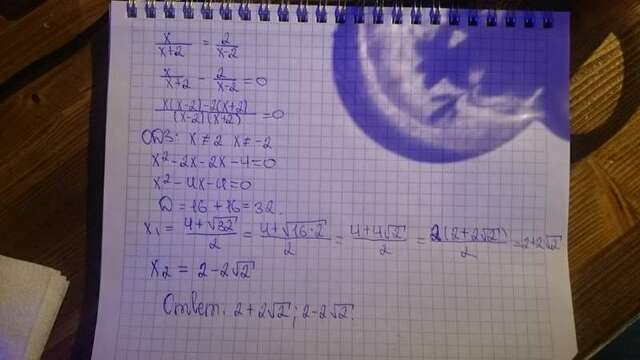 x/(x+2) = 2/(x-2)
x/(x+2) - 2/(x-2) = 0
(x(x-2)-2(x+2))/((x-2)(x+2)) = 0
ОДЗ: x ≠ 2 x ≠ -2
x² - 2x - 2x - 4 = 0
x² - 4x - 4 = 0
D = 16 + 16 = 32
x₁ = (4+√32)/2 = (4+√(16·2))/2 = (4+4√2)/2 = 2(2+2√2)/2 = 2+2√2
x₂ = 2 - 2√2
Ответ: 2+2√2; 2-2√2.